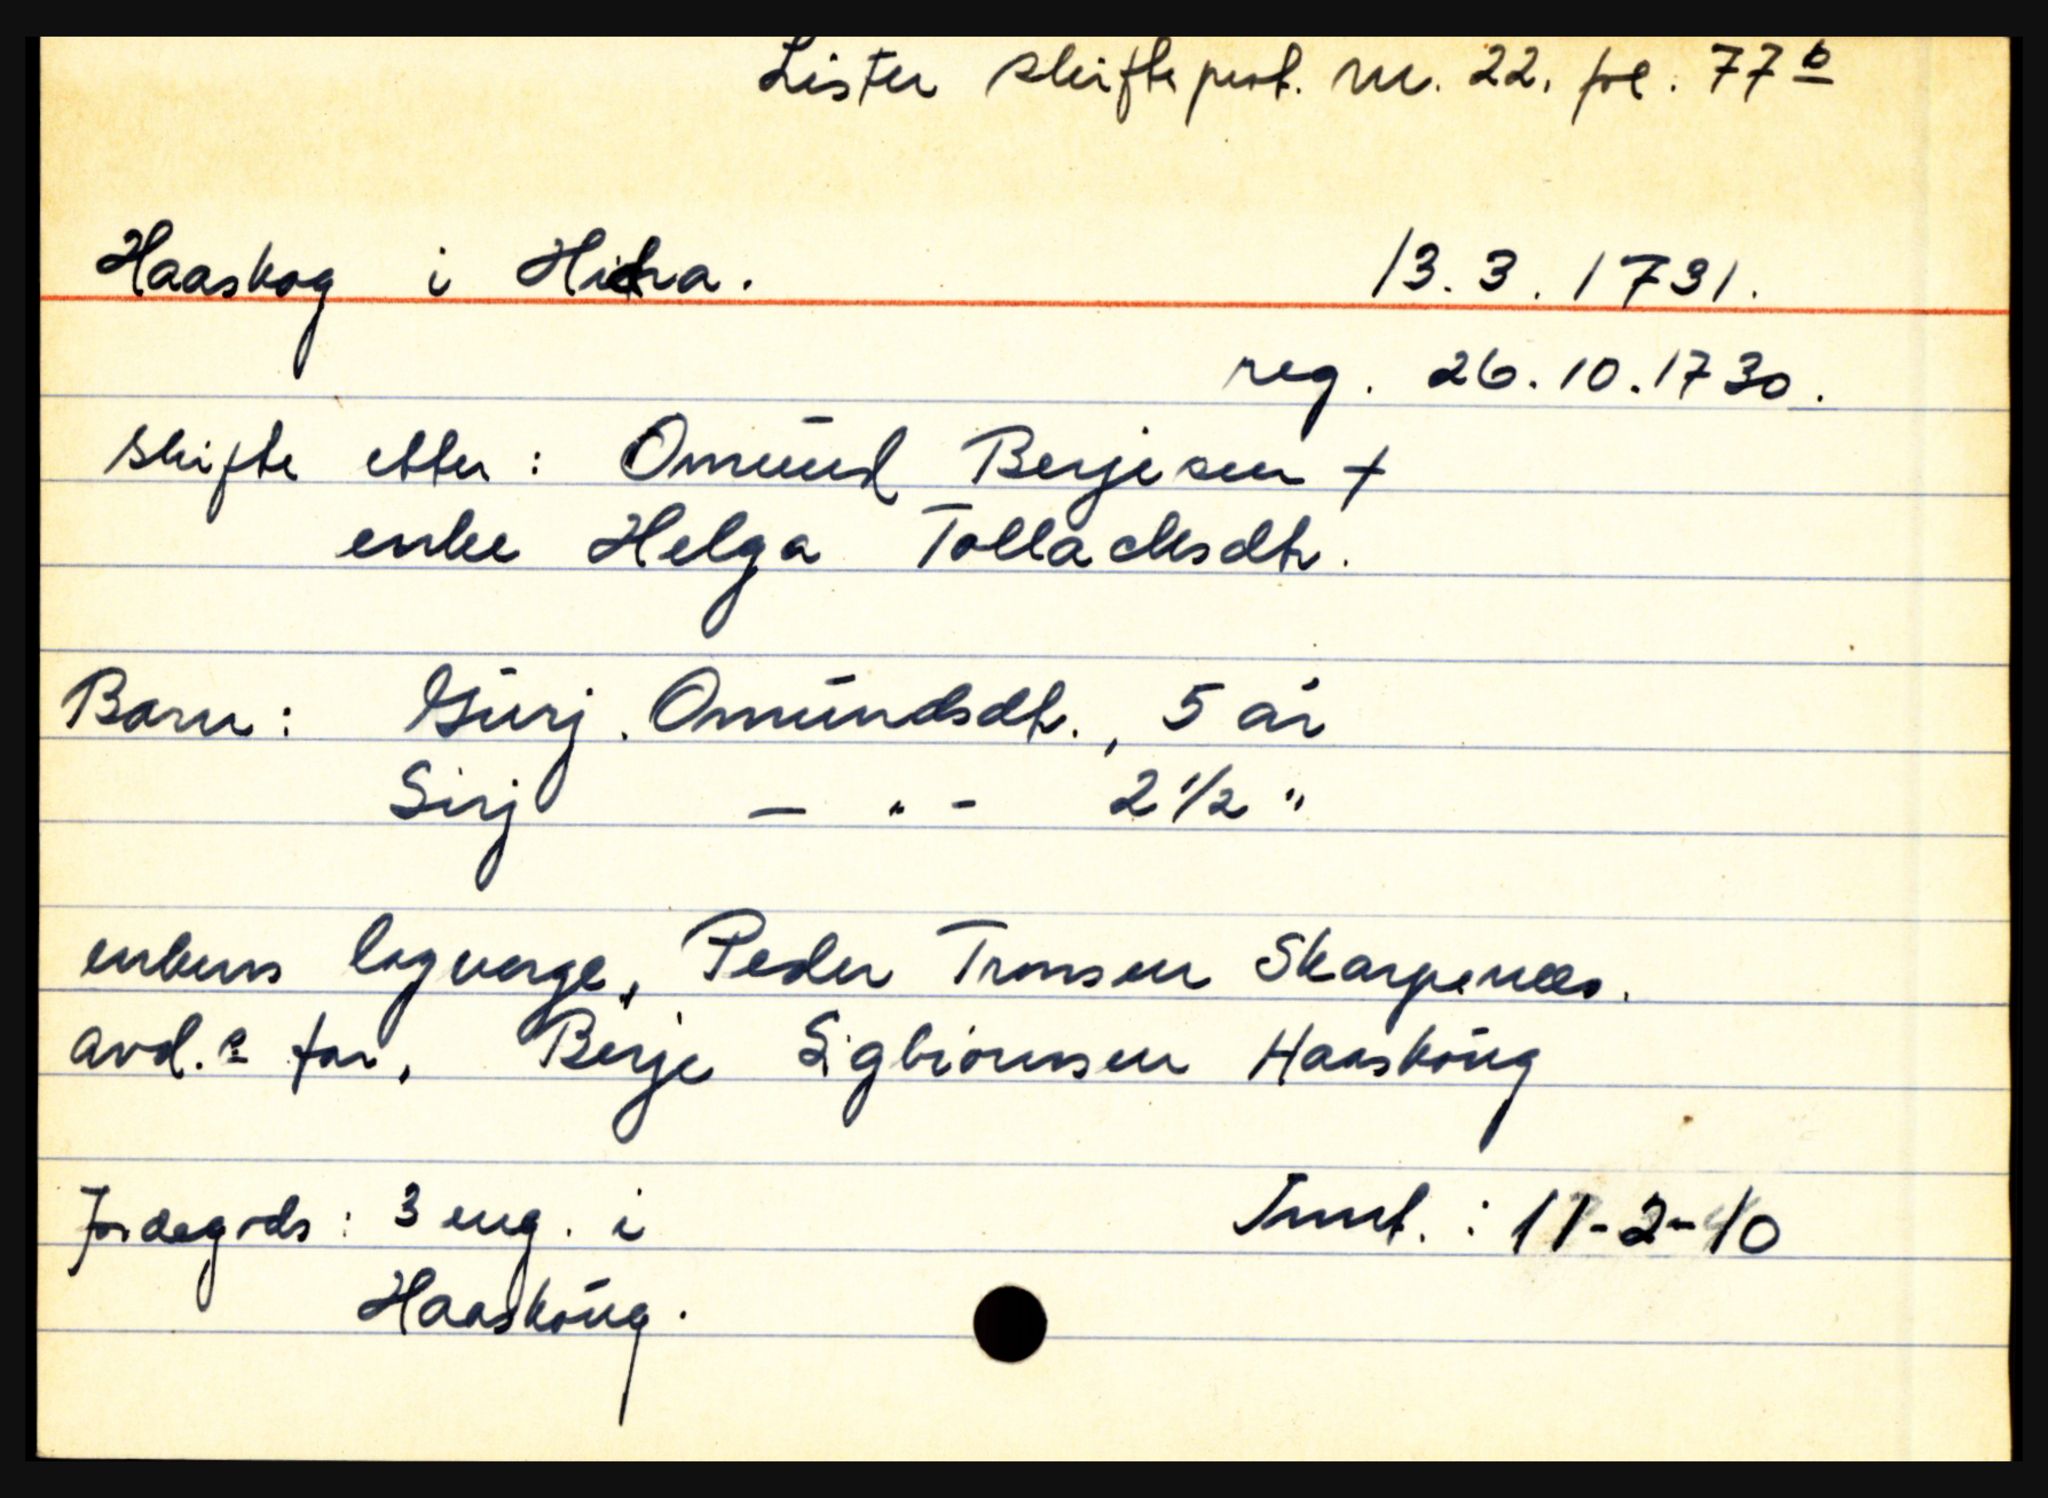 Lister skifteprot. nr. 22. fol. 77 b
Haaskog i Hidra. 13.3.1731.
reg. 26.10.1730.
Skifte etter: Omund Berjesen +
enke Helga Tollachsdtr.
Barn: Gurj. Omundsdtr., 5 år
Sirj — " - 2 1/2 "
enkens lagverge, Peder Tronsen Skarpenes.
avd.s far, Berje Sigbiørnsen Haaskoug
Jordegods: 3 eng. i Innt.: 11-2-10
Haaskoug.